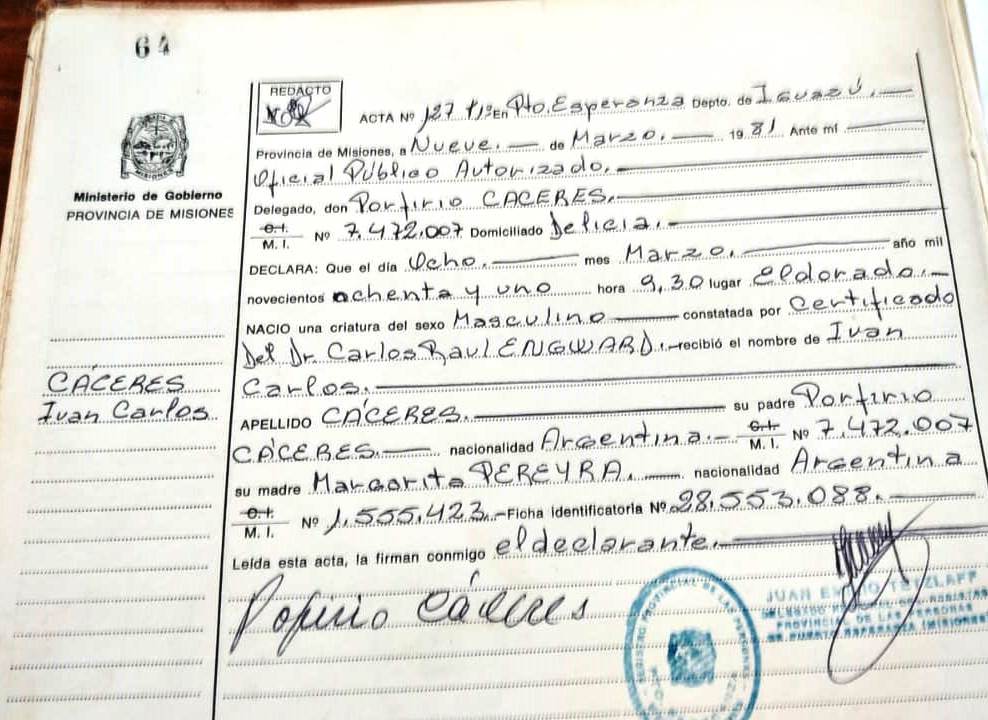 64
REDACTO
ACTA Nº 127 En Pto. Esperanza Depto. de Iguazú.
Provincia de Misiones, a Nueve. de Marzo. 19 81 Ante mí
Oficial Público Autorizado.
Delegado, don Porfirio CACERES.
C.I.
M. I. Nº 7.472.007 Domiciliado Delicia.
DECLARA: Que el día Ocho. mes Marzo. año mil
novecientos ochenta y uno hora 9,30 lugar Eldorado.
NACIO una criatura del sexo Masculino constatada por Certificado
Del Dr. Carlos Raul ENGWARD. recibió el nombre de Ivan
Carlos.
APELLIDO CÁCERES. su padre Porfirio
CÁCERES. nacionalidad Argentina. C.I.
M. I. Nº 7.472.007
su madre Margarita PEREYRA. nacionalidad Argentina
C.I.
M. I. Nº 1.555.423. Ficha identificatoria Nº 28.553.088.
Leída esta acta, la firman conmigo el declarante.
Ministerio de Gobierno
PROVINCIA DE MISIONES
CÁCERES
Ivan Carlos
Cáceres
REGISTRO PROVINCIAL DE LAS PERSONAS
JUAN
PROVINCIAL DE LAS PERSONAS